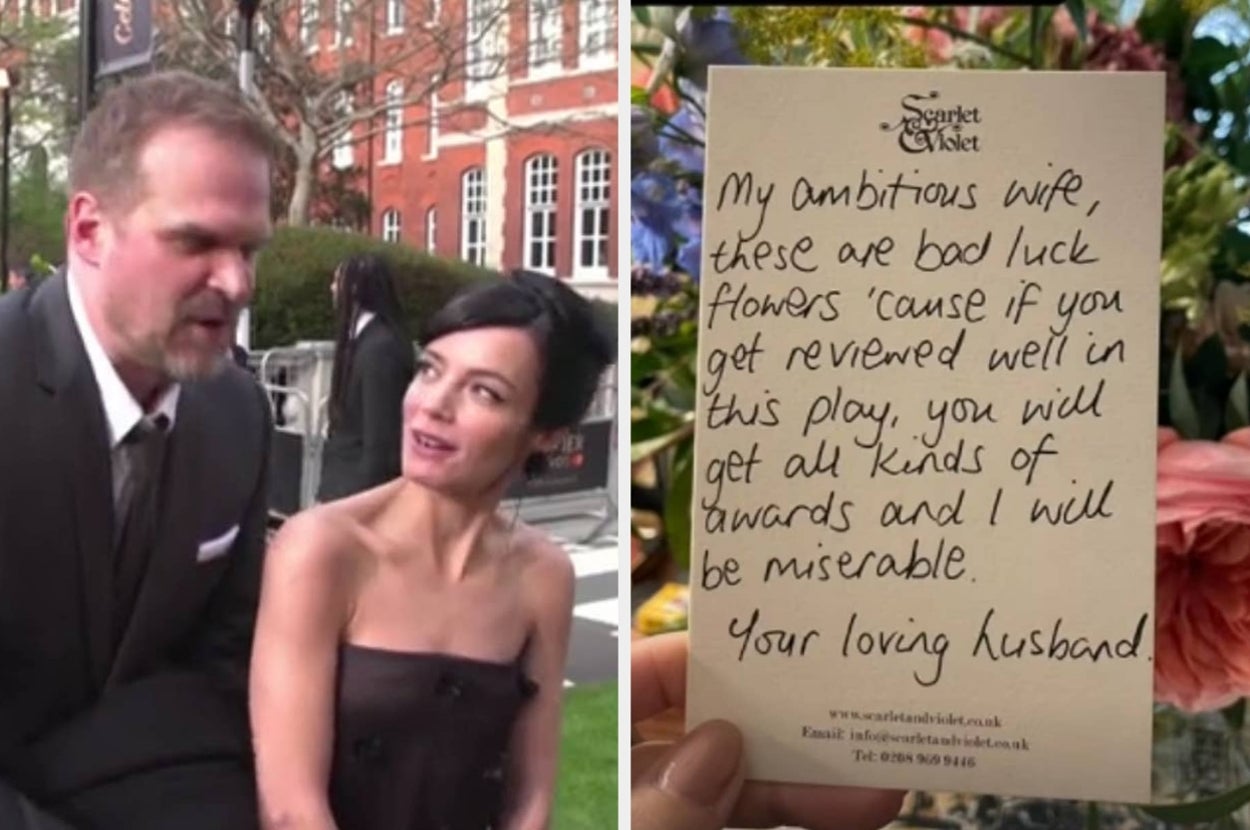 Scarlet
& Violet
My ambitious wife,
these are bad luck
flowers 'cause if you
get reviewed well in
this play, you will
get all kinds of
awards and I will
be miserable.
Your loving husband.
www.scarletandviolet.co.uk
Email: info@scarletandviolet.co.uk
Tel: 0208 969 9446